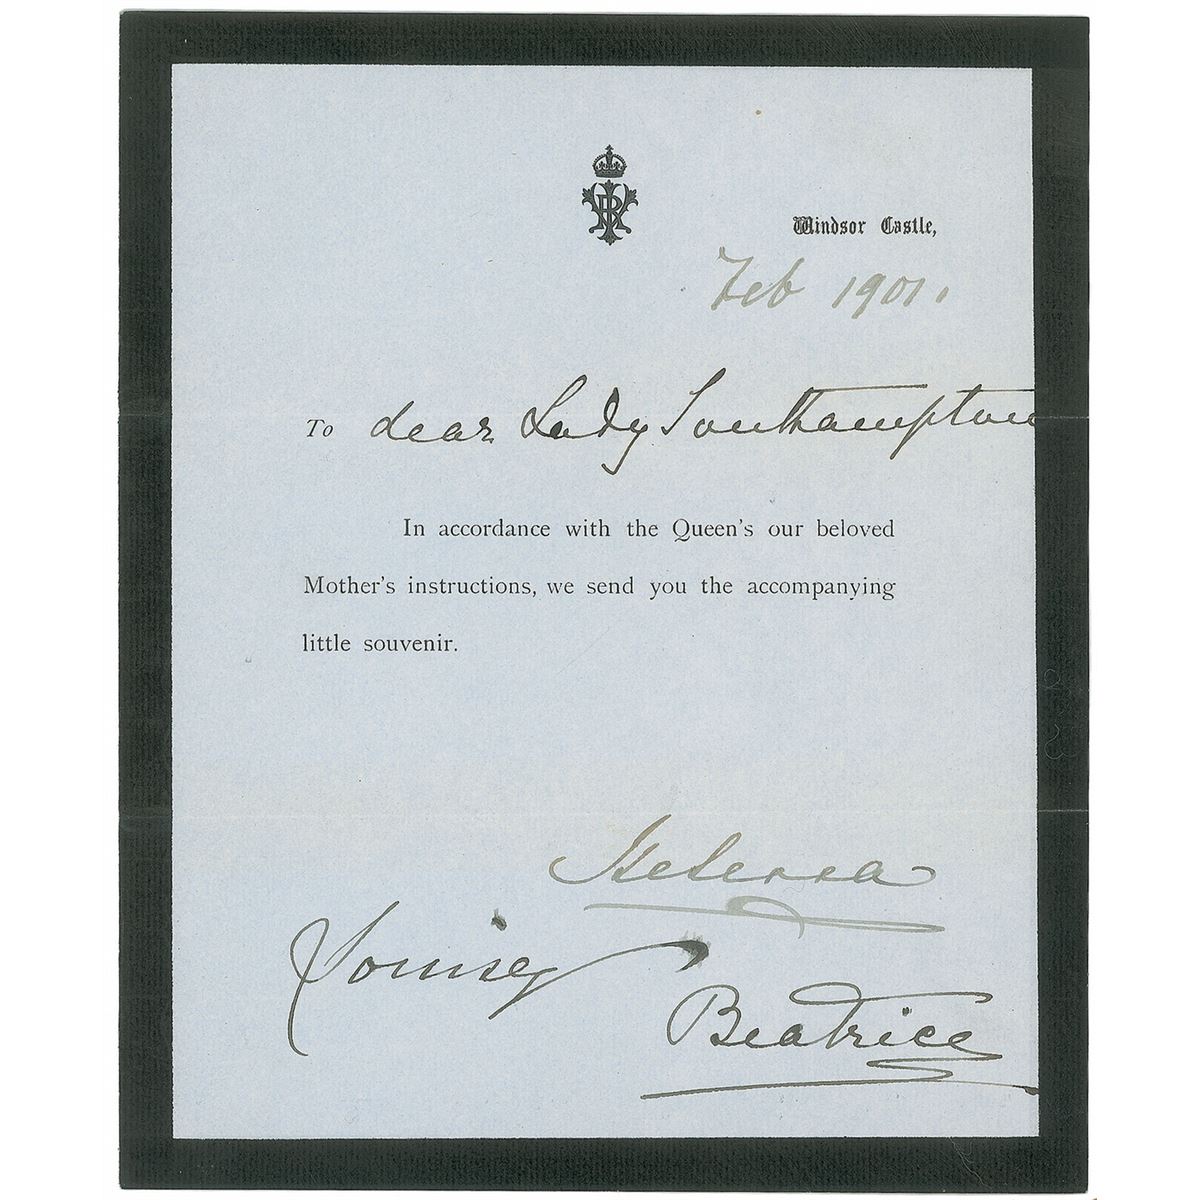 VRI
Windsor Castle,
Feb 1901.
To dear Lady Southampton
In accordance with the Queen's our beloved
Mother's instructions, we send you the accompanying
little souvenir.
Helena
Louise
Beatrice